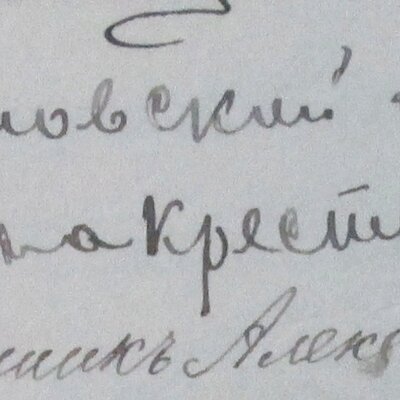 новский
на крест
шикъ Алекс